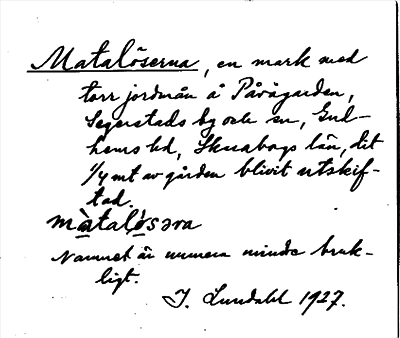 Matalöserna, en mark med
torr jordmån å Påvägården,
Segerstads by och sn, Gud-
hems hd, Skarabogs län, dit
1/4 mt av gården blivit utskif-
tad.
màtalo̱səra
Namnet är numera mindre bruk-
ligt.
J. Lundahl 1927.